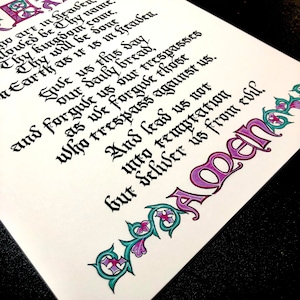 who art in heaven,
Hallowed be thy name
Thy kingdom come,
Thy will be done
on Earth as it is in heaven
Give us this day
our daily bread.
and forgive us our trespasses
as we forgive those
who trespass against us.
And lead us not
into temptation
but deliver us from evil.
AMEN